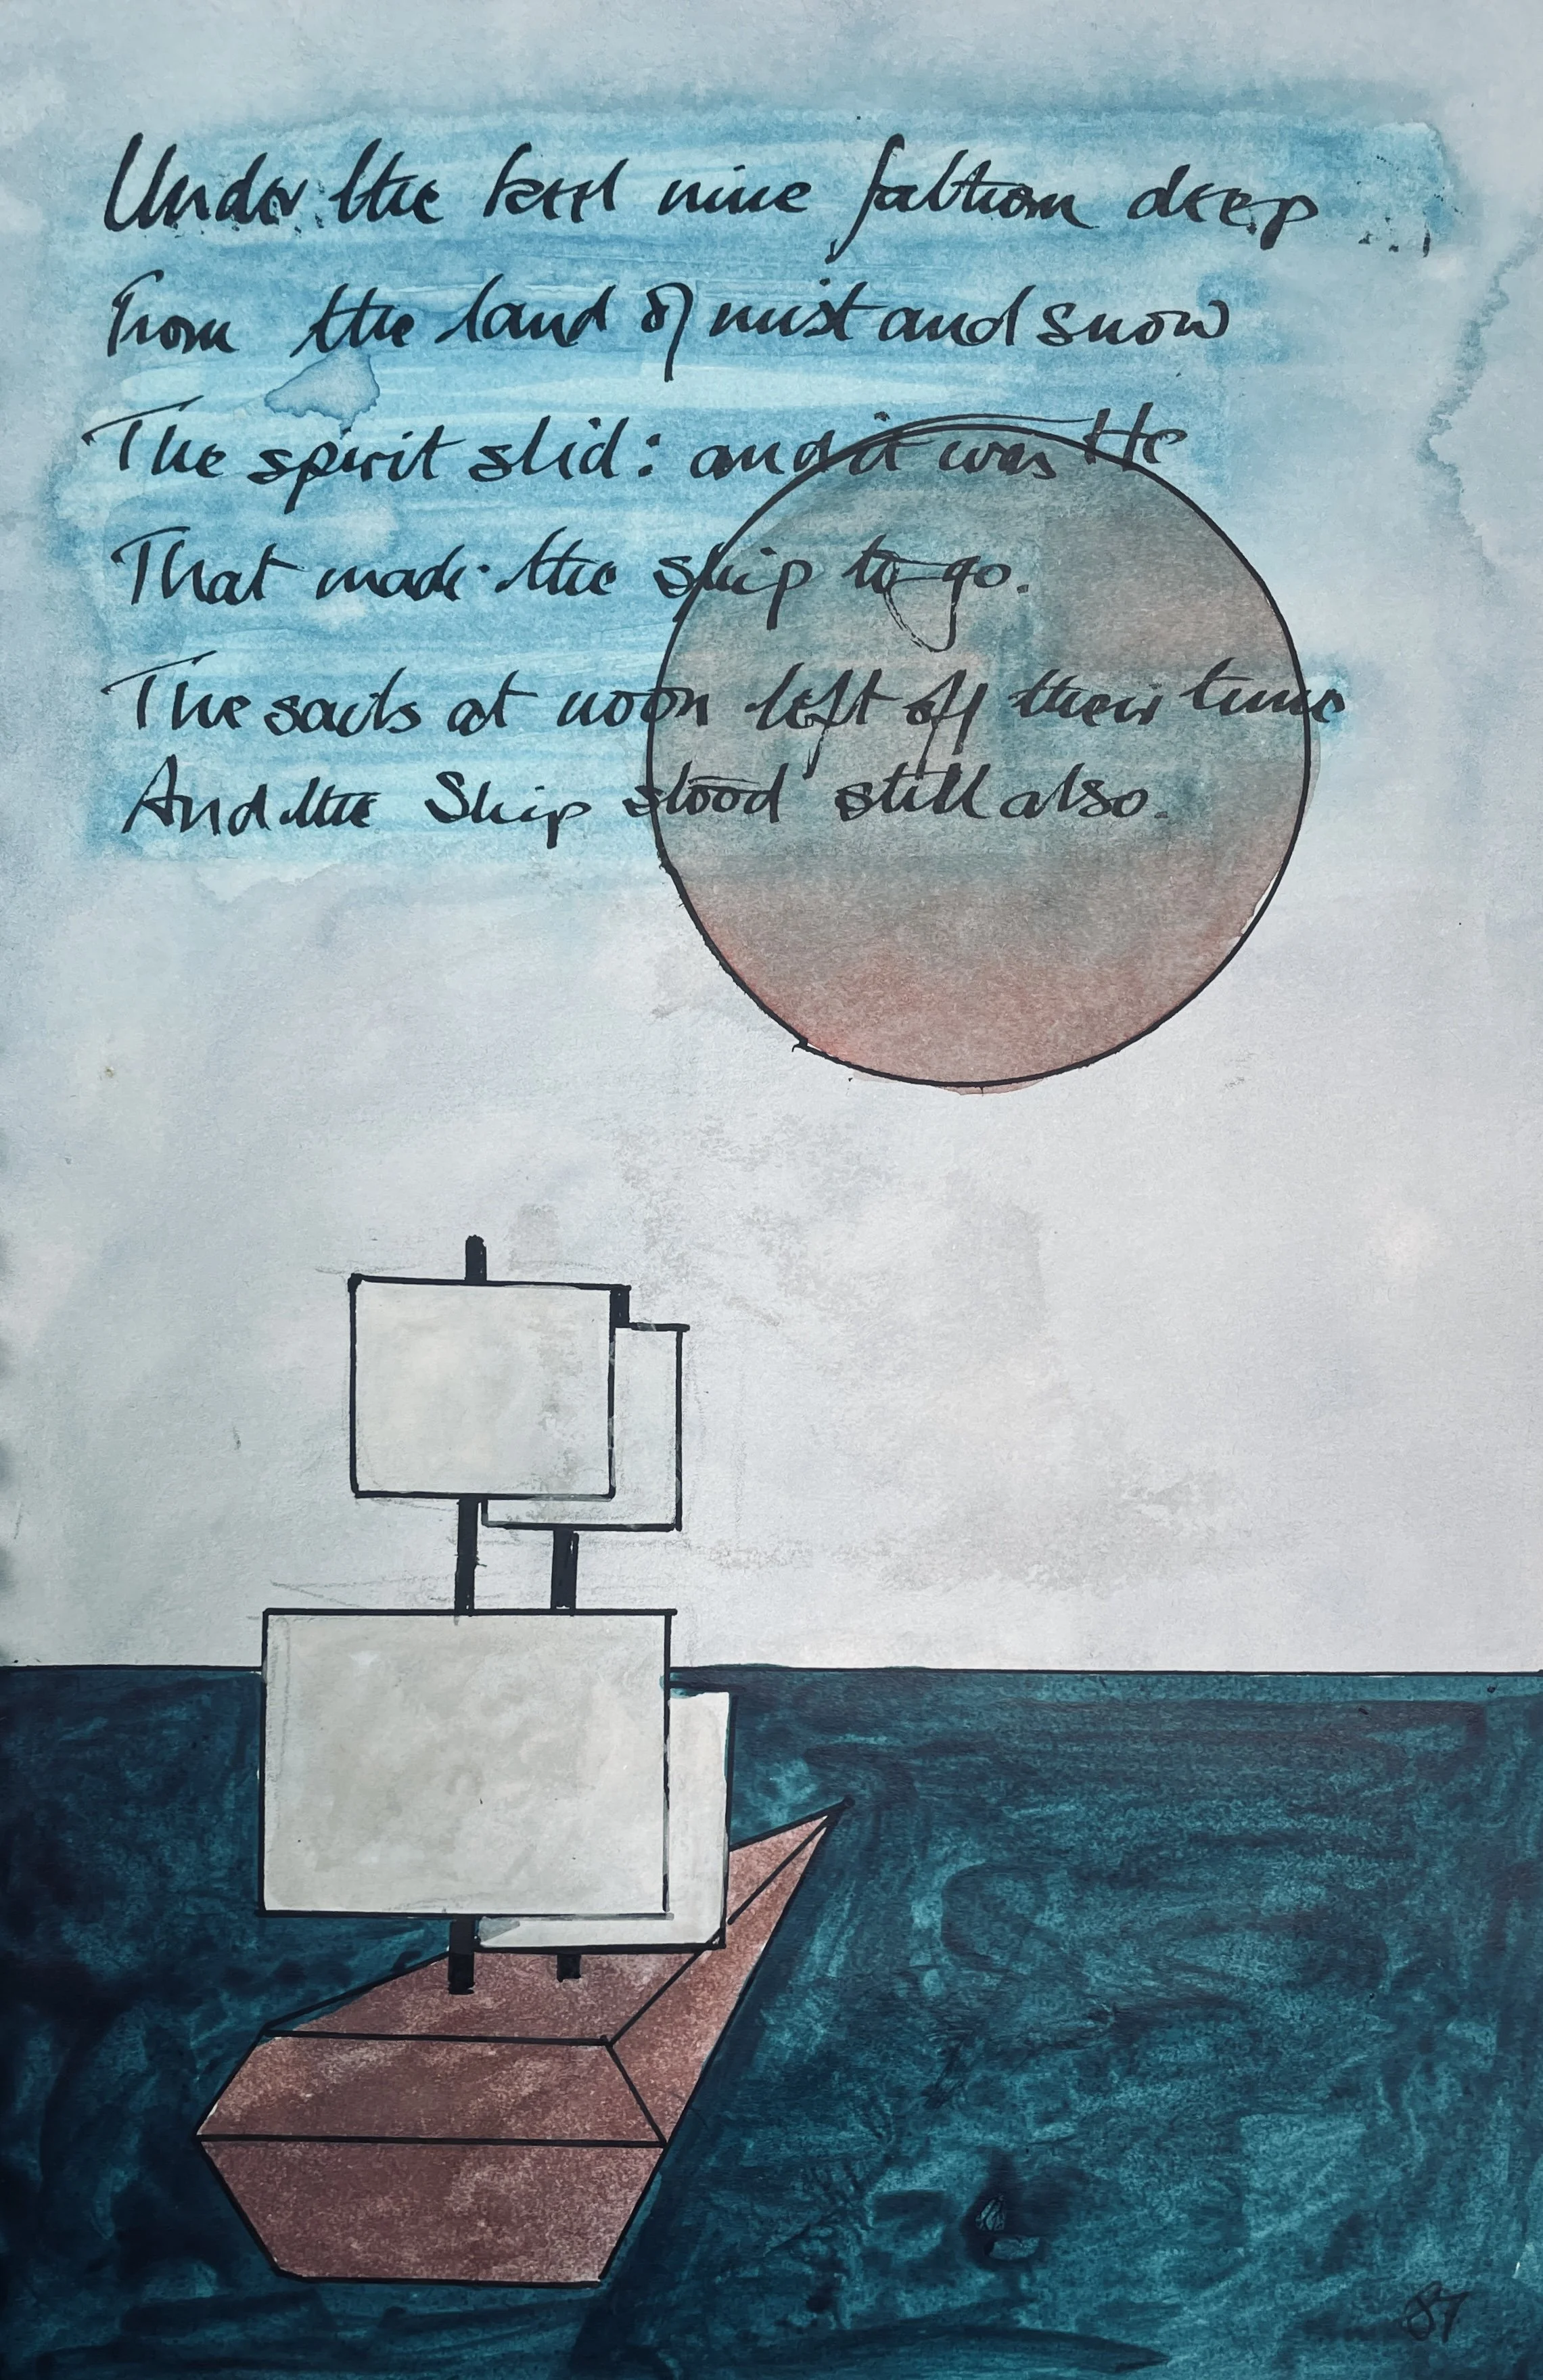 Under the keel nine fathom deep
From the land of mist and snow
The spirit slid: and it was He
That made the ship to go.
The sails at noon left off their tune
And the Ship stood still also.